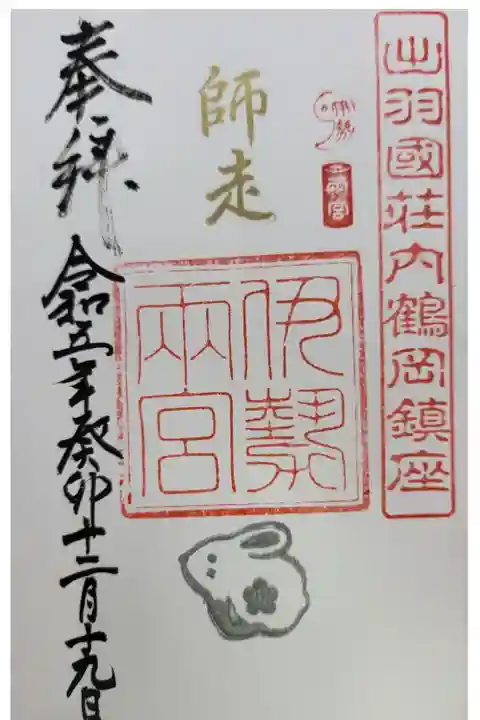 出羽國荘内鶴岡鎮座
伊勢
両宮
師走
伊勢
兩宮
奉拝
令和五年癸卯十二月十九日